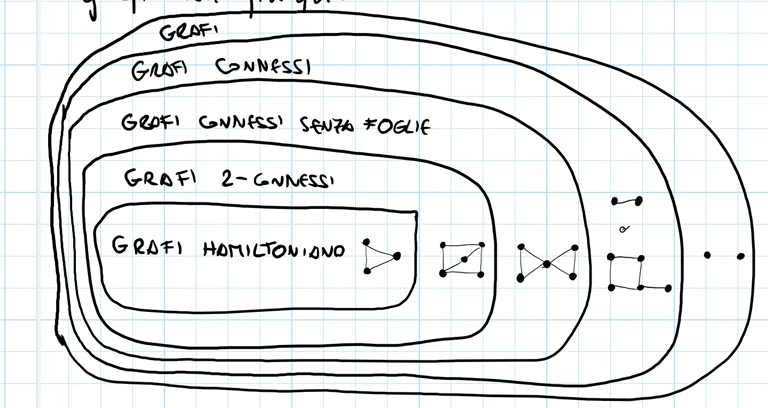 GRAFI
GRAFI CONNESSI
GRAFI CONNESSI SENZA FOGLIE
GRAFI 2-CONNESSI
GRAFI HAMILTONIANO
o